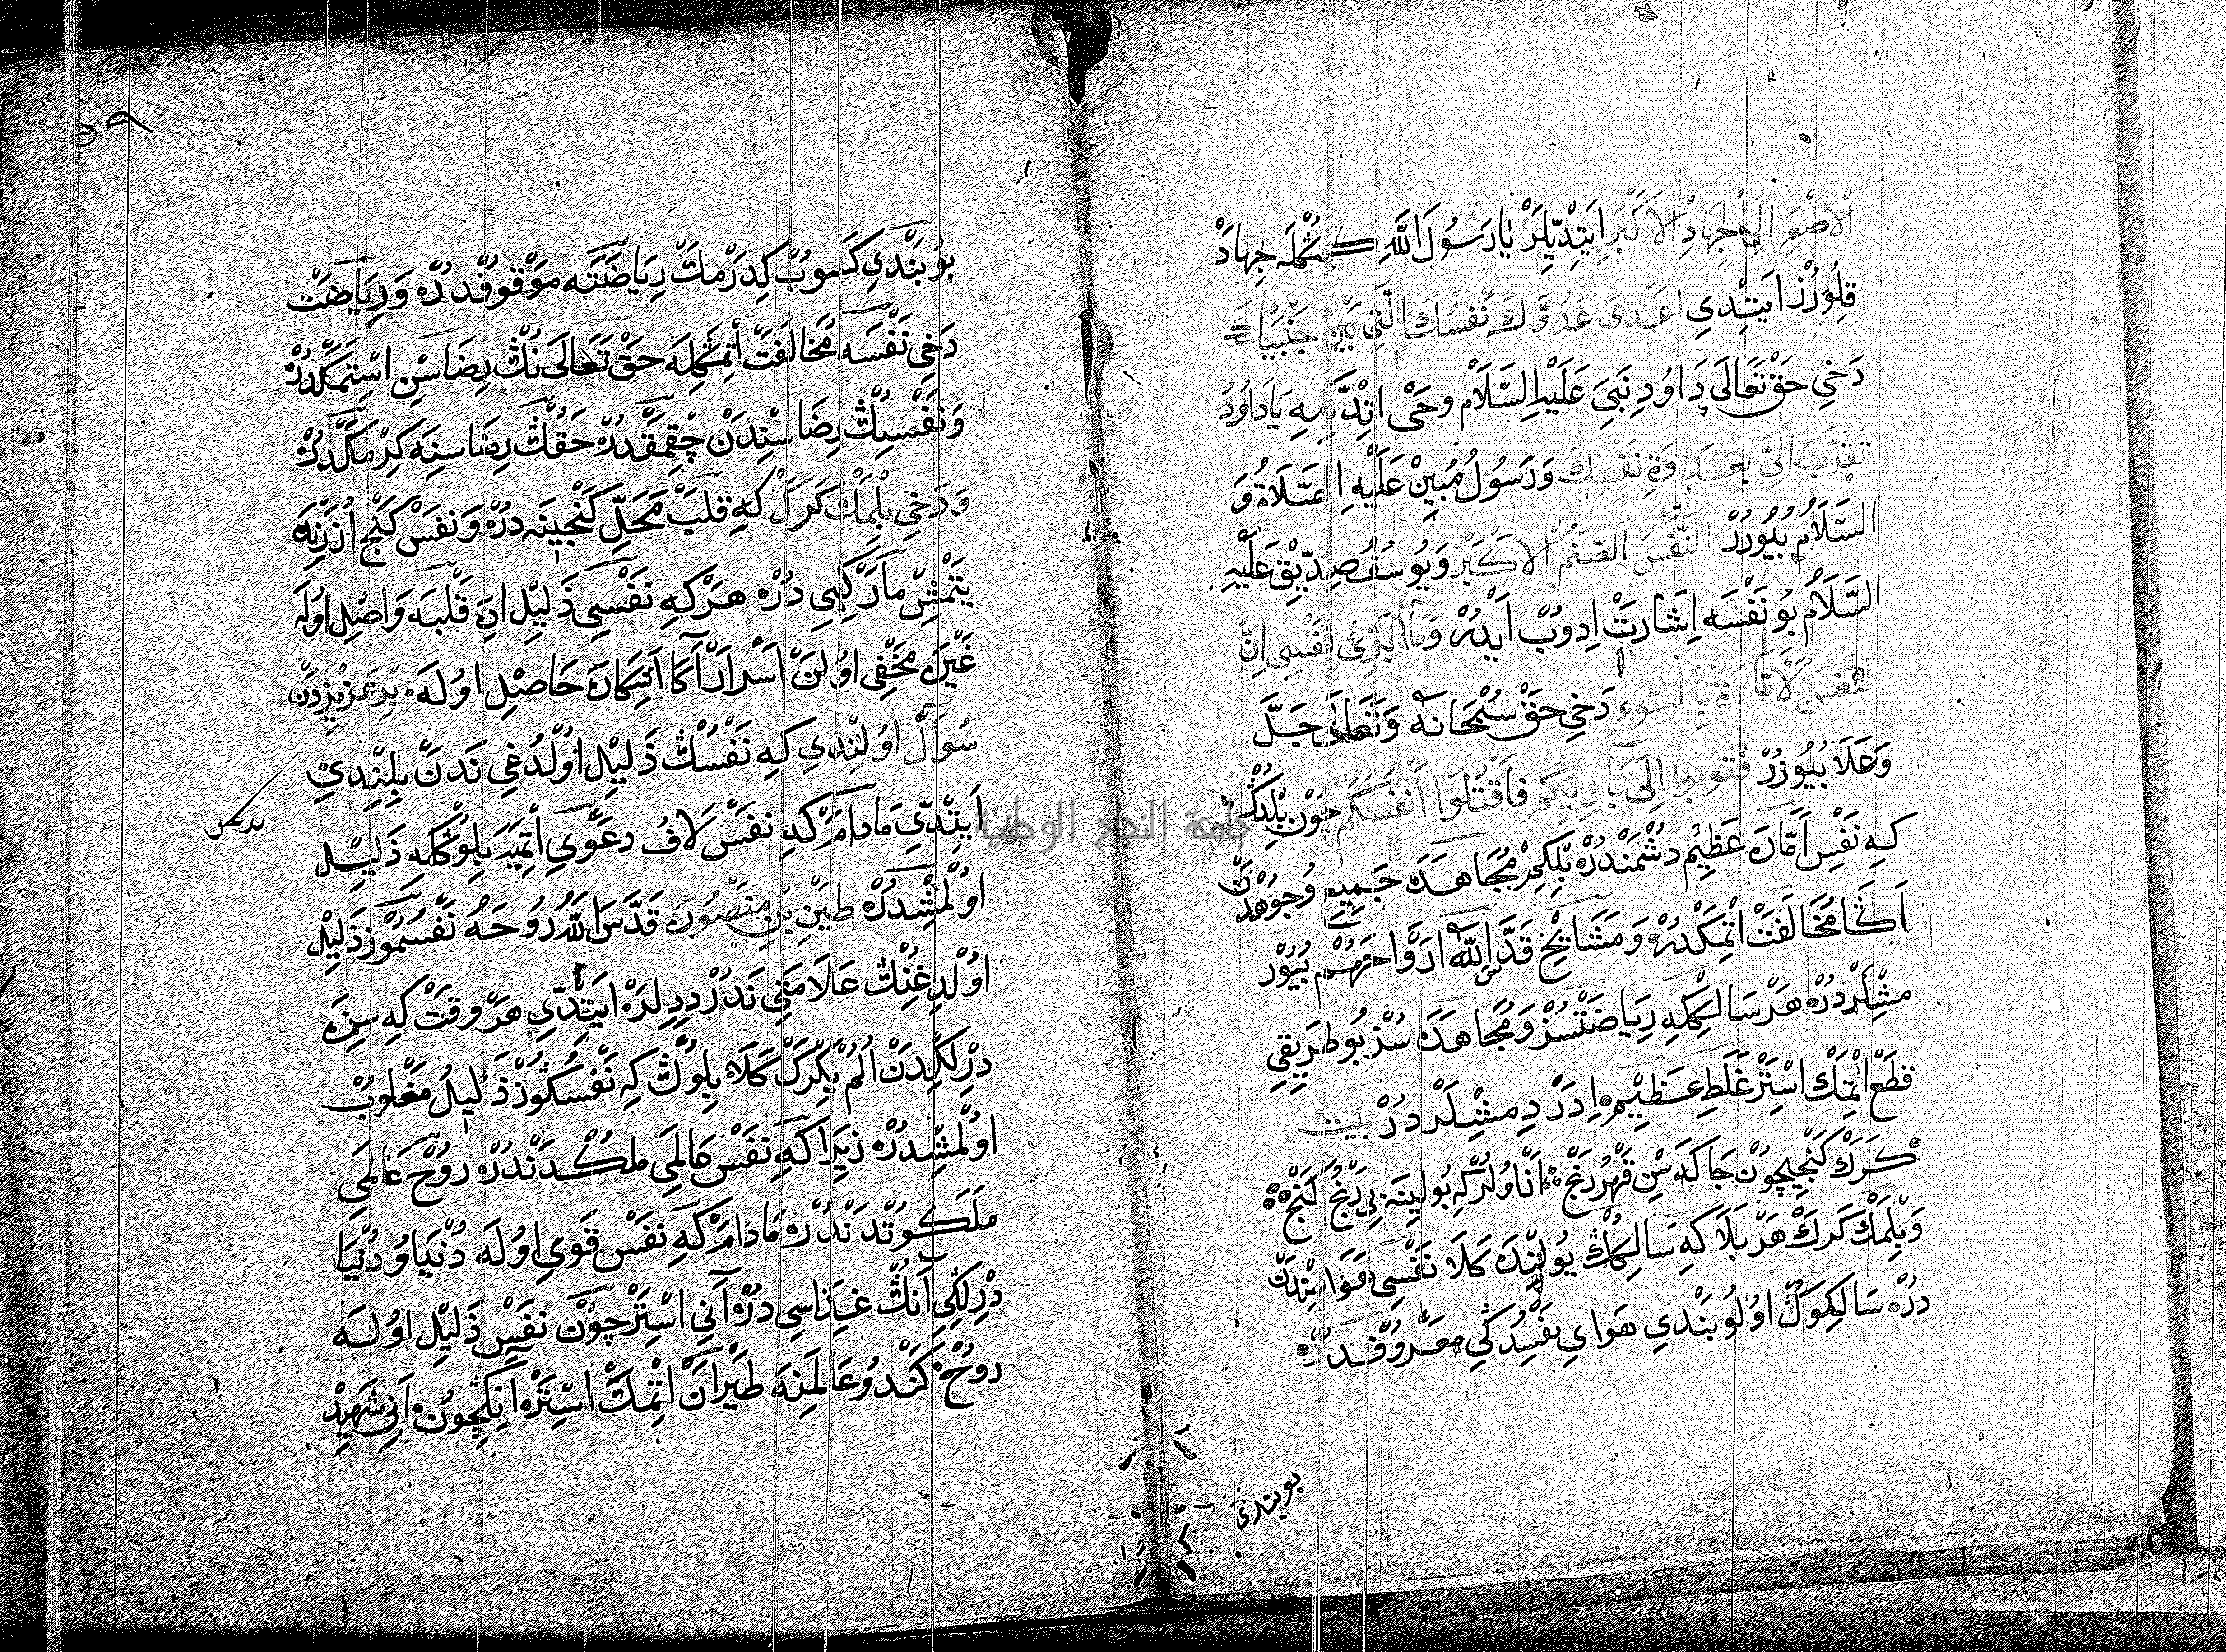 الْاَصْغَرِ اِلَى الْجِهَادِ الْاَكْبَرِ اَيْتِدِيلَرْ يَا رَسُولَ اللّٰهِ كِمُڭْلَه جِهَادْ
قِلُورُزْ اَيْتِدِي اَعْدَى عَدُوِّكَ نَفْسُكَ الَّتِي بَيْنَ جَنْبَيْكَ
دَخِي حَقْ تَعَالَى دَاوُدِ نَبِيَ عَلَيْهِ السَّلَامْ وَحْى اتْدِّي كِه يَا دَاوُدُ
تَقَرَّبَ اِلَيَّ بِعَدَاوَةِ نَفْسِكَ وَرَسُولُ مُبِينْ عَلَيْهِ الصَّلَاةُ وَ
السَّلَامُ بُيُورُرْ النَّفْسُ الصَّنَمُ الْاَكْبَرُ وَيُوسُفُ صِدِّيقْ عَلَيْهِ
السَّلَامُ بُو نَفْسَه اِشَارَتْ اِدُوبْ اَيْدُرْ وَمَا اُبَرِّئُ نَفْسِي اِنَّ
النَّفْسَ لَاَمَّارَةٌ بِالسُّوءِ دَخِي حَقْ سُبْحَانَهُ وَتَعَالَى جَلَّ
وَعَلَا بُيُورُرْ فَتُوبُوا اِلَى بَارِئِكُمْ فَاقْتُلُوا اَنْفُسَكُمْ چُونْ بِلْدُڭْ
كِه نَفْسِ اَمَّارَه عَظِيمْ دُشْمَنْدُرْ بِلْكِلْ مُجَاهَدَه جَمِيعِ وُجُوهْدَنْ
اَڭَا مُخَالَفَتْ اتْمَكْدُرْ وَمَشَايِخْ قَدَّسَ اللّٰهُ اَرْوَاحَهُمْ بُيُورْ
مِشْلَرْدُرْ هَرْ سَالِكْ كِه رِيَاضَتْسُزْ وَمُجَاهَدَه سُزْ بُو طَرِيقِي
قَطْعْ اتْمَكْ اسْتَرْ غَلَطِ عَظِيمْ اِدَرْ دِمِشْلَرْدُرْ بيت
كَرَكْ كَنْجِيچُونْ جَا كَه سِنْ قَهْرُ رَنْجْ ؞ اَنَا وُلُرْ كِه بُولِينَه بِي رَنْجُ كَنْجْ ؞
وَبِلْمَكْ كَرَكْ هَرْ بَلَا كِه سَالِكُڭْ يُولِنْدَه كَلَا نَفْسِي هَوَاسِنْدَنْ
دُرْ سَالِكُوڭْ اُولُو بَنْدِي هَوَايِ نَفْسِدُكِي مَعْرُوفْدُرْ
بو بندى
٥٩
بُو بَنْدِي كَسُوبْ كِدَرْمَكْ رِيَاضَتَه مَوْقُوفْدُرْ وَرِيَاضَتْ
دَخِي نَفْسَه مُخَالَفَتْ اتْمَكِلَه حَقْ تَعَالَى نُڭْ رِضَاسِنْ اسْتَمَكْدُرْ
وَنَفْسِڭْ رِضَاسِنْدَنْ چِقْمَقْدُرْ حَقُّڭْ رِضَاسِنَه كِرْمَكْدُرْ
وَدَخِي بِلْمَكْ كَرَكْ كِه قَلْبْ مَحَلِّ كَنْجِينَه دُرْ وَنَفَسْ كَنْجْ اُزَرِنَه
يَتْمِشْ مَارْ كِبِي دُرْ هَرْ كِه نَفْسِي ذَلِيلْ اِدَه قَلْبَه وَاصِلْ اُولَه
غَيْرَه مَخْفِي اُولَنْ اَسْرَارْ اَڭَا اَشِكَارَه حَاصِلْ اُولَه ۰ بِرْ عَزِيزْدَنْ
سُوَالْ اُولِنْدِي كِه نَفْسُڭْ ذَلِيلْ اُولْدُغِي نَدَنْ بِلِنْدِي
اَيْتِدِّي مَادَامْ كِه نَفَسْ لَافُ دَعْوِي اتْمِيَه بِلُوڭْ كِه ذَلِيلْ
اُولْمِشْدُرْ بِنْ مَنْصُورْ قَدَّسَ اللّٰهُ رُوحَهُ نَفْسُمُوزْ ذَلِيلْ
اُولْدِغِنُڭْ عَلَامَتِي نَدُرْ دِدِلَرْ اَيْتِدِّي هَرْ وَقَتْ كِه سِزَه
دِرْلِكْدَنْ اُلُمْ يَكْرَكْ كَلَا بِلُوڭْ كِه نَفْسُڭُوزْ ذَلِيلُ مَغْلُوبْ
اُولْمِشْدُرْ زِيرَا كِه نَفَسْ عَالَمِي مُلْكْدَنْدُرْ رُوحْ عَالَمِي
مَلَكُوتْدَنْدُرْ مَادَامْ كِه نَفَسْ قَوِي اُولَه دُنْيَا وُ دُنْيَا
دِرْلِكِي اَنُڭْ غِزَاسِي دُرْ اَنِي اسْتَرْ چُونْ نَفَسْ ذَلِيلْ اُولَه
رُوحْ كَنْدُو عَالَمِنَه طَيَرَانْ اتْمَكْ اسْتَرْ اَنِڭِچُونْ اَنِي شَهِيدْ
جامعة النجاح الوطنية